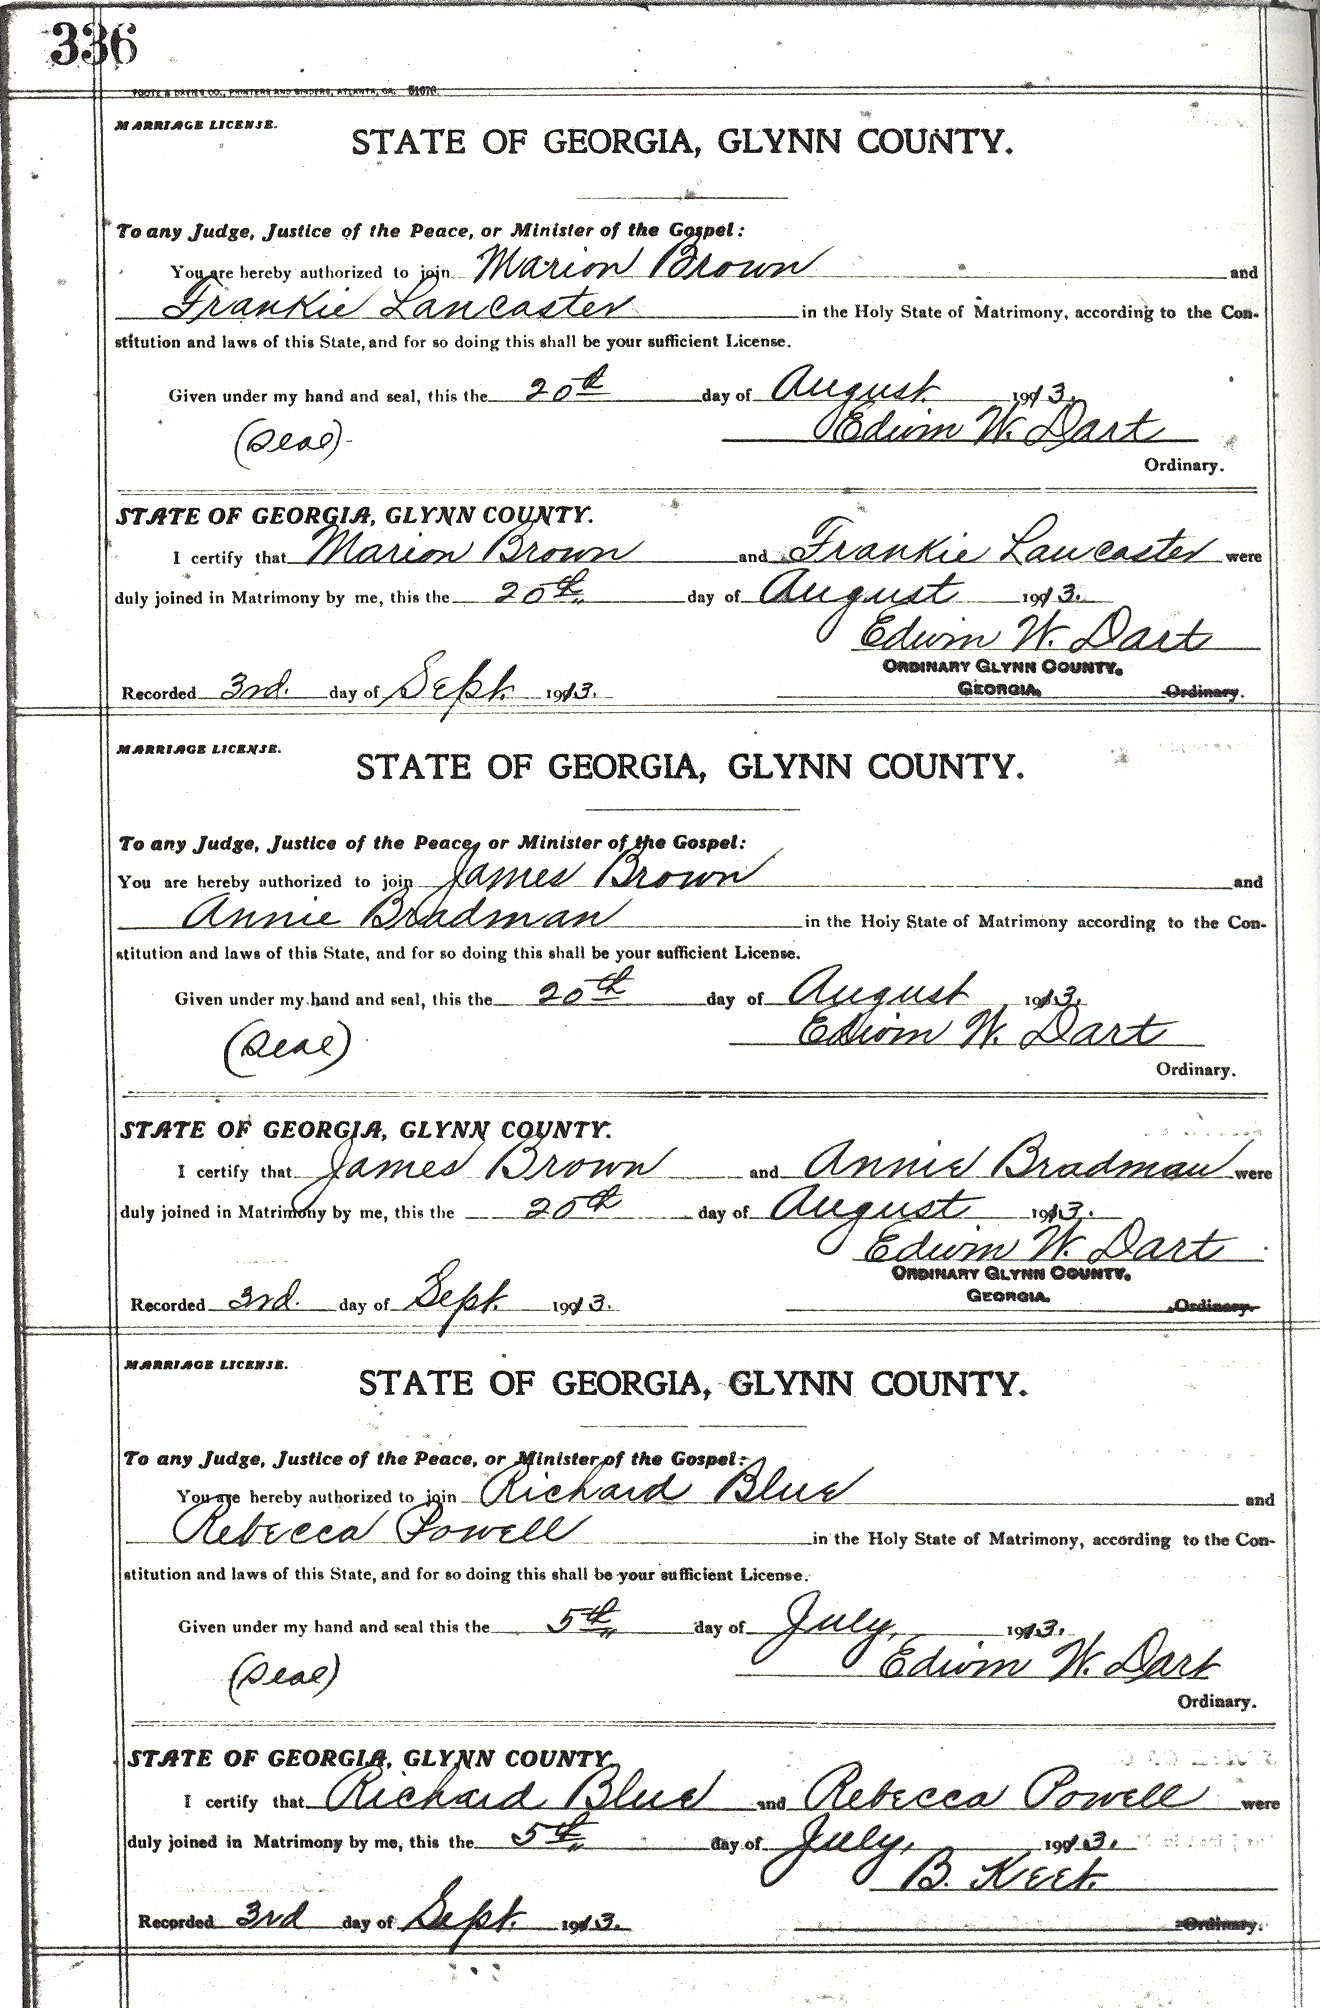 336
FOOTE & DAVIES CO., PRINTERS AND BINDERS, ATLANTA, GA. 51076.
MARRIAGE LICENSE.
STATE OF GEORGIA, GLYNN COUNTY.
To any Judge, Justice of the Peace, or Minister of the Gospel:
You are hereby authorized to join Marion Brown and
Frankie Lancaster in the Holy State of Matrimony, according to the Con-
stitution and laws of this State, and for so doing this shall be your sufficient License.
Given under my hand and seal, this the 20th day of August 1913.
(Seal) Edwin W. Dart
Ordinary.
STATE OF GEORGIA, GLYNN COUNTY.
I certify that Marion Brown and Frankie Lancaster were
duly joined in Matrimony by me, this the 20th day of August 1913.
Edwin W. Dart
ORDINARY GLYNN COUNTY.
Recorded 3rd. day of Sept. 1913. GEORGIA. Ordinary.
MARRIAGE LICENSE.
STATE OF GEORGIA, GLYNN COUNTY.
To any Judge, Justice of the Peace, or Minister of the Gospel:
You are hereby authorized to join James Brown and
Annie Bradman in the Holy State of Matrimony according to the Con-
stitution and laws of this State, and for so doing this shall be your sufficient License.
Given under my hand and seal, this the 20th day of August 1913.
(Seal) Edwin W. Dart
Ordinary.
STATE OF GEORGIA, GLYNN COUNTY.
I certify that James Brown and Annie Bradman were
duly joined in Matrimony by me, this the 20th day of August 1913.
Edwin W. Dart
ORDINARY GLYNN COUNTY.
GEORGIA.
Recorded 3rd. day of Sept. 1913. Ordinary.
MARRIAGE LICENSE.
STATE OF GEORGIA, GLYNN COUNTY.
To any Judge, Justice of the Peace, or Minister of the Gospel:
You are hereby authorized to join Richard Blue and
Rebecca Powell in the Holy State of Matrimony, according to the Con-
stitution and laws of this State, and for so doing this shall be your sufficient License.
Given under my hand and seal this the 5th day of July, 1913.
(Seal) Edwin W. Dart
Ordinary.
STATE OF GEORGIA, GLYNN COUNTY.
I certify that Richard Blue and Rebecca Powell were
duly joined in Matrimony by me, this the 5th day of July, 1913.
B. Keet.
Recorded 3rd day of Sept. 1913. Ordinary.